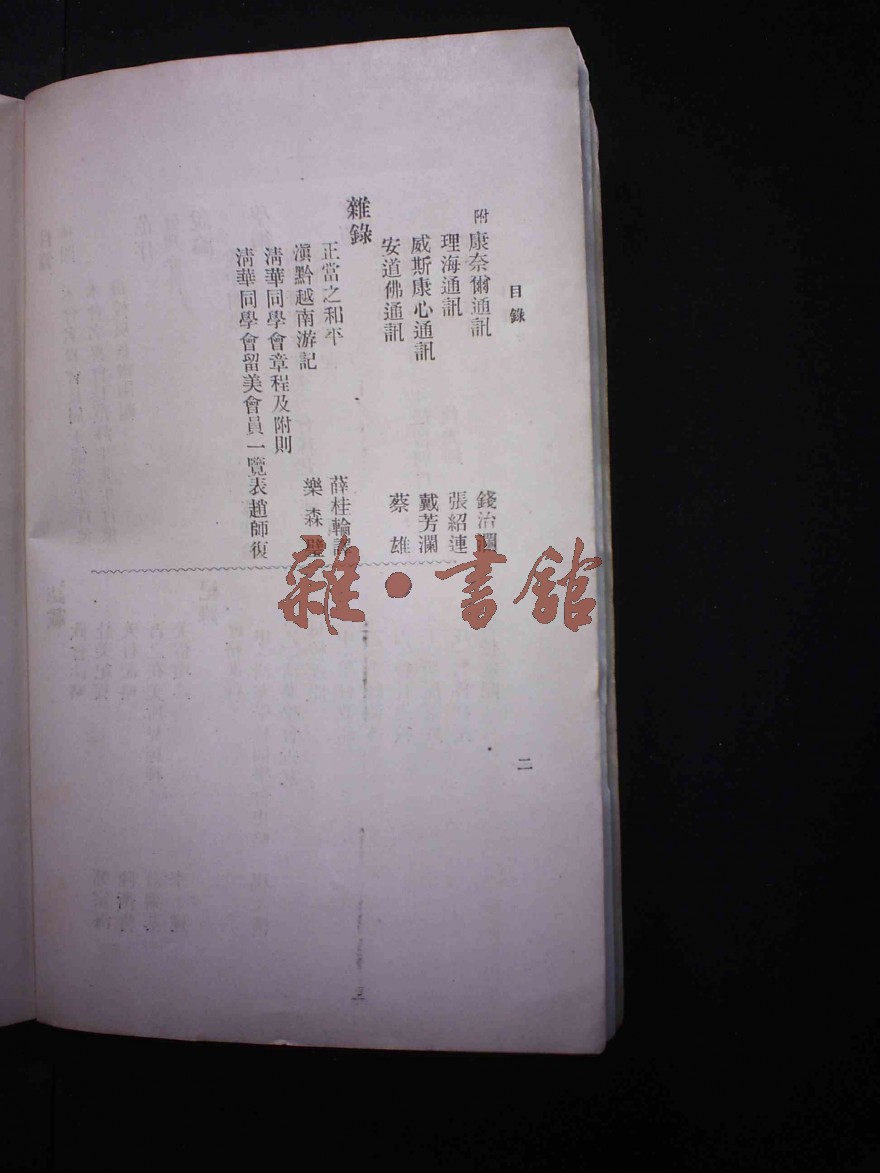 目錄
附 康奈爾通訊 錢治瀾
理海通訊 張紹連
威斯康心通訊 戴芳瀾
安道佛通訊 蔡雄
雜錄
正當之和平 薛桂輪
滇黔越南游記 樂森
清華同學會章程及附則
清華同學會留美會員一覽表 趙師復
二
雜·書館